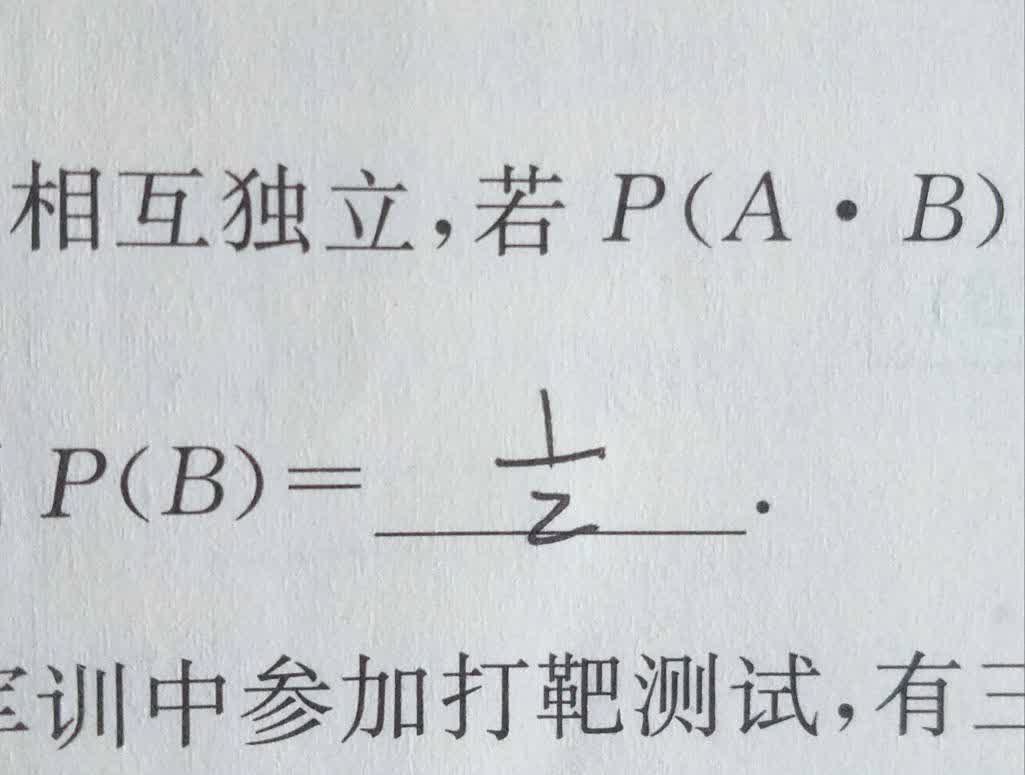 相互独立,若 P(A·B)
P(B)=1/2.
训中参加打靶测试,有三